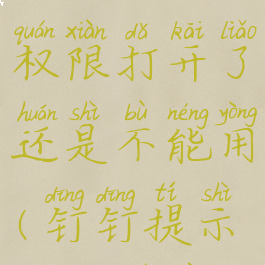 quán xiàn dǎ kāi liǎo
权限打开了
huán shì bù néng yòng
还是不能用
dīng dīng tí shì
（钉钉提示